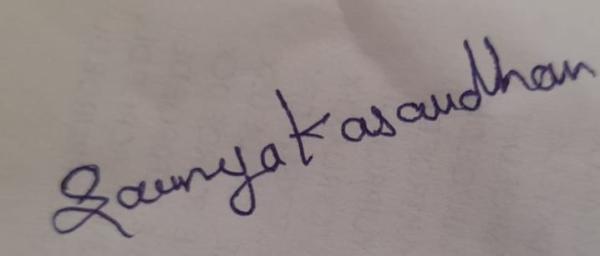 Saumya Kasaudhan